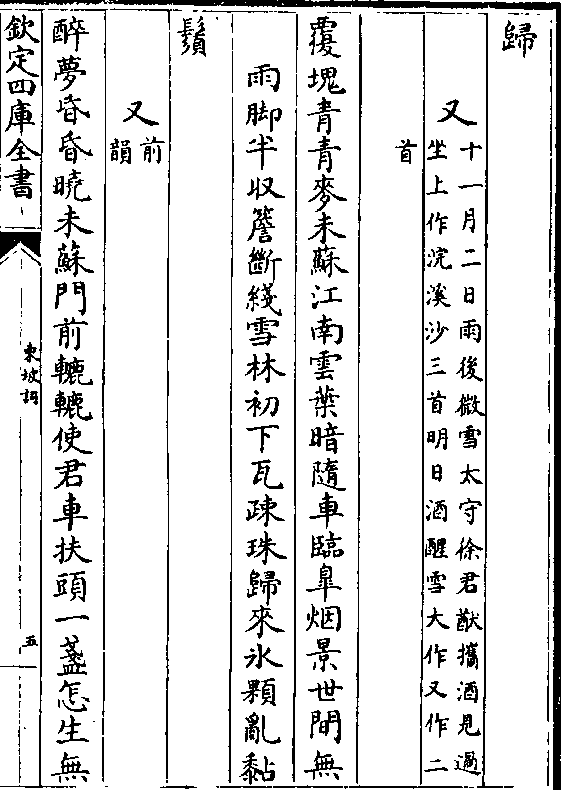 歸
又
十一月二日雨後微雪太守徐君猷攜酒見過
坐上作浣溪沙三首明日酒醒雪大作又作二
首
覆塊青青麥未蘇江南雲葉暗隨車臨臯烟景世間無
雨脚半収簷斷綫雪林初下瓦疎珠歸來氷顆亂黏
鬚
又
前
韻
醉夢昏昏曉未蘇門前轆轆使君車扶頭一盞怎生無
欽定四庫全書
東坡詞
五